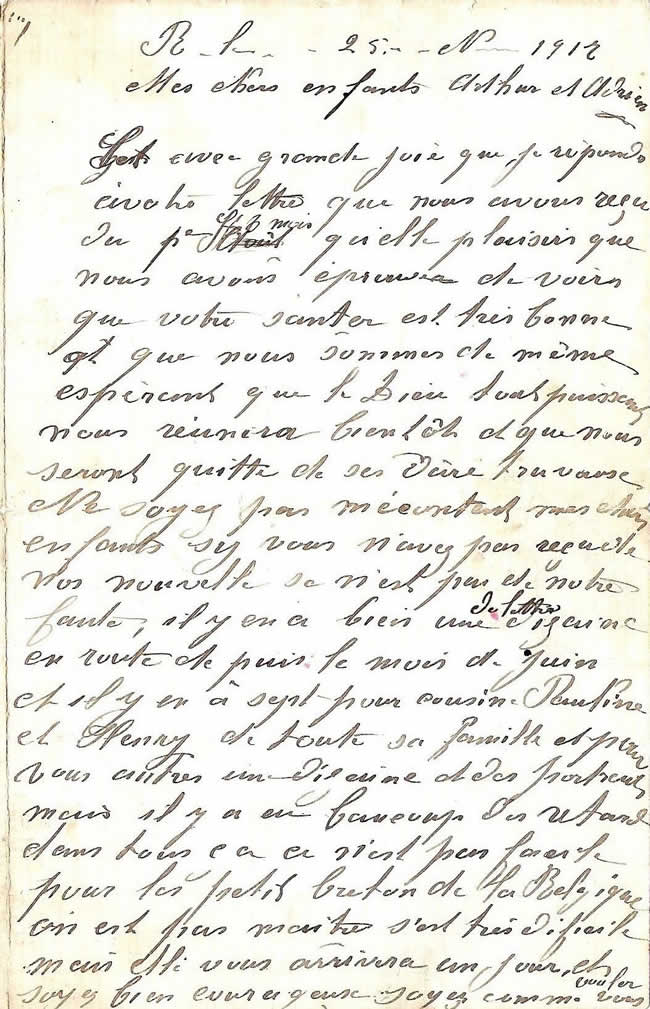 R. le - - 25 - - N 1917
Mes chers enfants Arthur et Adrien
Cest avec grande joie que je réponds
avotre lettre que nous avons reçu
du pr mois qu'elle plaisirs que
nous avons éprouvée de voirs
que votre santer est très bonne
et que nous sommes de même
espérant que le Dieu tout puissant
nous réunira bientôt et que nous
seront quitte de ses
Ne soyez pas mécontent mes chers
enfants sy vous n'avez pas reçu de
nos nouvelle se n'est pas de notre
faute, il y en a bien une dizaine de lettre
en route de puis le mois de Juin
et il y en à sept pour cousine Pauline
et Henry de toute sa famille et pour
vous autres une dizaine et des portraits
mais il y a eu beaucoup du retard
dans tous ca ce n'est pas facile
pour les petit de la Belgique
on est pas maitre s'est très dificile
mais elle vous arrivera un jour, et
soyez bien courageuse soyez comme vous vouler